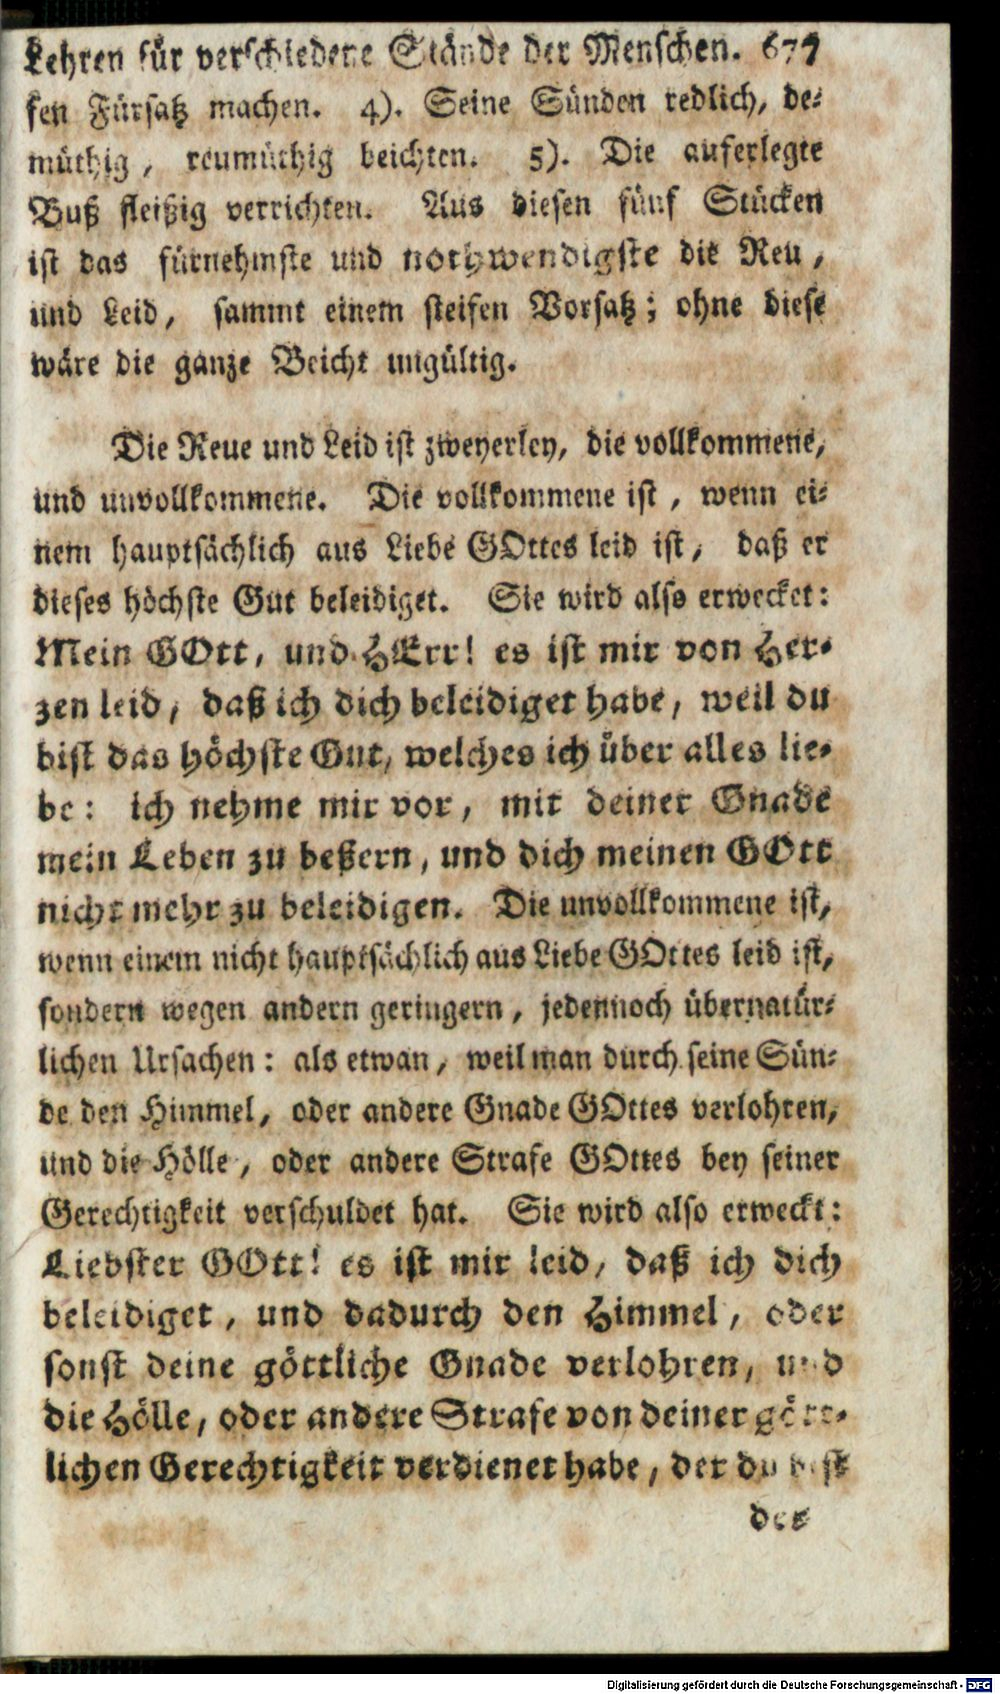 Lehren für verschiedene Stände der Menschen. 677
sen Fürsatz machen. 4). Seine Sünden redlich, de-
müthig, reumüthig beichten. 5). Die auferlegte
Buß fleißig verrichten. Aus diesen fünf Stücken
ist das fürnehmste und nothwendigste die Reu,
und Leid, sammt einem steifen Vorsatz; ohne diese
wäre die ganze Beicht ungültig.
Die Reue und Leid ist zweyerley, die vollkommene,
und unvollkommene. Die vollkommene ist, wenn ei-
nem hauptsächlich aus Liebe GOttes leid ist, daß er
dieses höchste Gut beleidiget. Sie wird also erwecket:
Mein GOtt, und HErr! es ist mir von Her-
zen leid, daß ich dich beleidiget habe, weil du
bist das höchste Gut, welches ich über alles lie-
be: ich nehme mir vor, mit deiner Gnade
mein Leben zu beßern, und dich meinen GOtt
nicht mehr zu beleidigen. Die unvollkommene ist,
wenn einem nicht hauptsächlich aus Liebe GOttes leid ist,
sondern wegen andern geringern, jedennoch übernatür-
lichen Ursachen: als etwan, weil man durch seine Sün-
de den Himmel, oder andere Gnade GOttes verlohren,
und die Hölle, oder andere Strafe GOttes bey seiner
Gerechtigkeit verschuldet hat. Sie wird also erweckt:
Liebster GOtt! es ist mir leid, daß ich dich
beleidiget, und dadurch den Himmel, oder
sonst deine göttliche Gnade verlohren, und
die Hölle, oder andere Strafe von deiner gött-
lichen Gerechtigkeit verdienet habe, der du bist
der
Digitalisierung gefördert durch die Deutsche Forschungsgemeinschaft - DFG